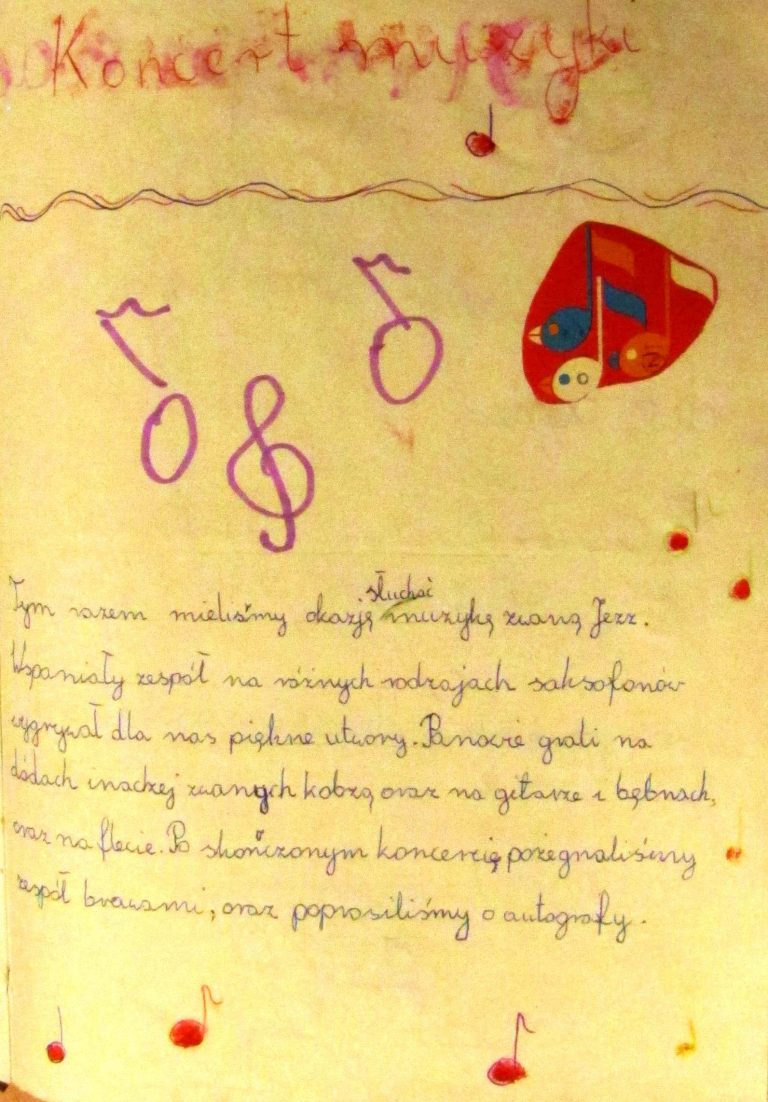 Koncert muzyki
słuchać
Tym razem mieliśmy okazję muzykę zwaną Jezz.
Wspaniały zespół na różnych rodzajach saksofonów
wygrywał dla nas piękne utwory. Panowie grali na
dudach inaczej zwanych kobzą oraz na gitarze i bębnach,
oraz na flecie. Po skończonym koncercie pożegnaliśmy
zespół brawami, oraz poprosiliśmy o autografy.